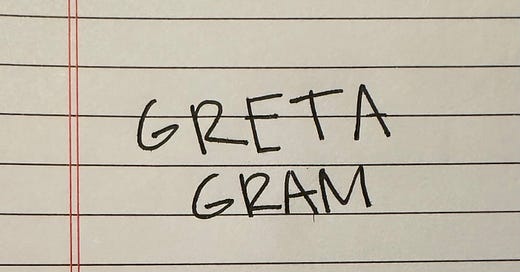 GRETA
GRAM